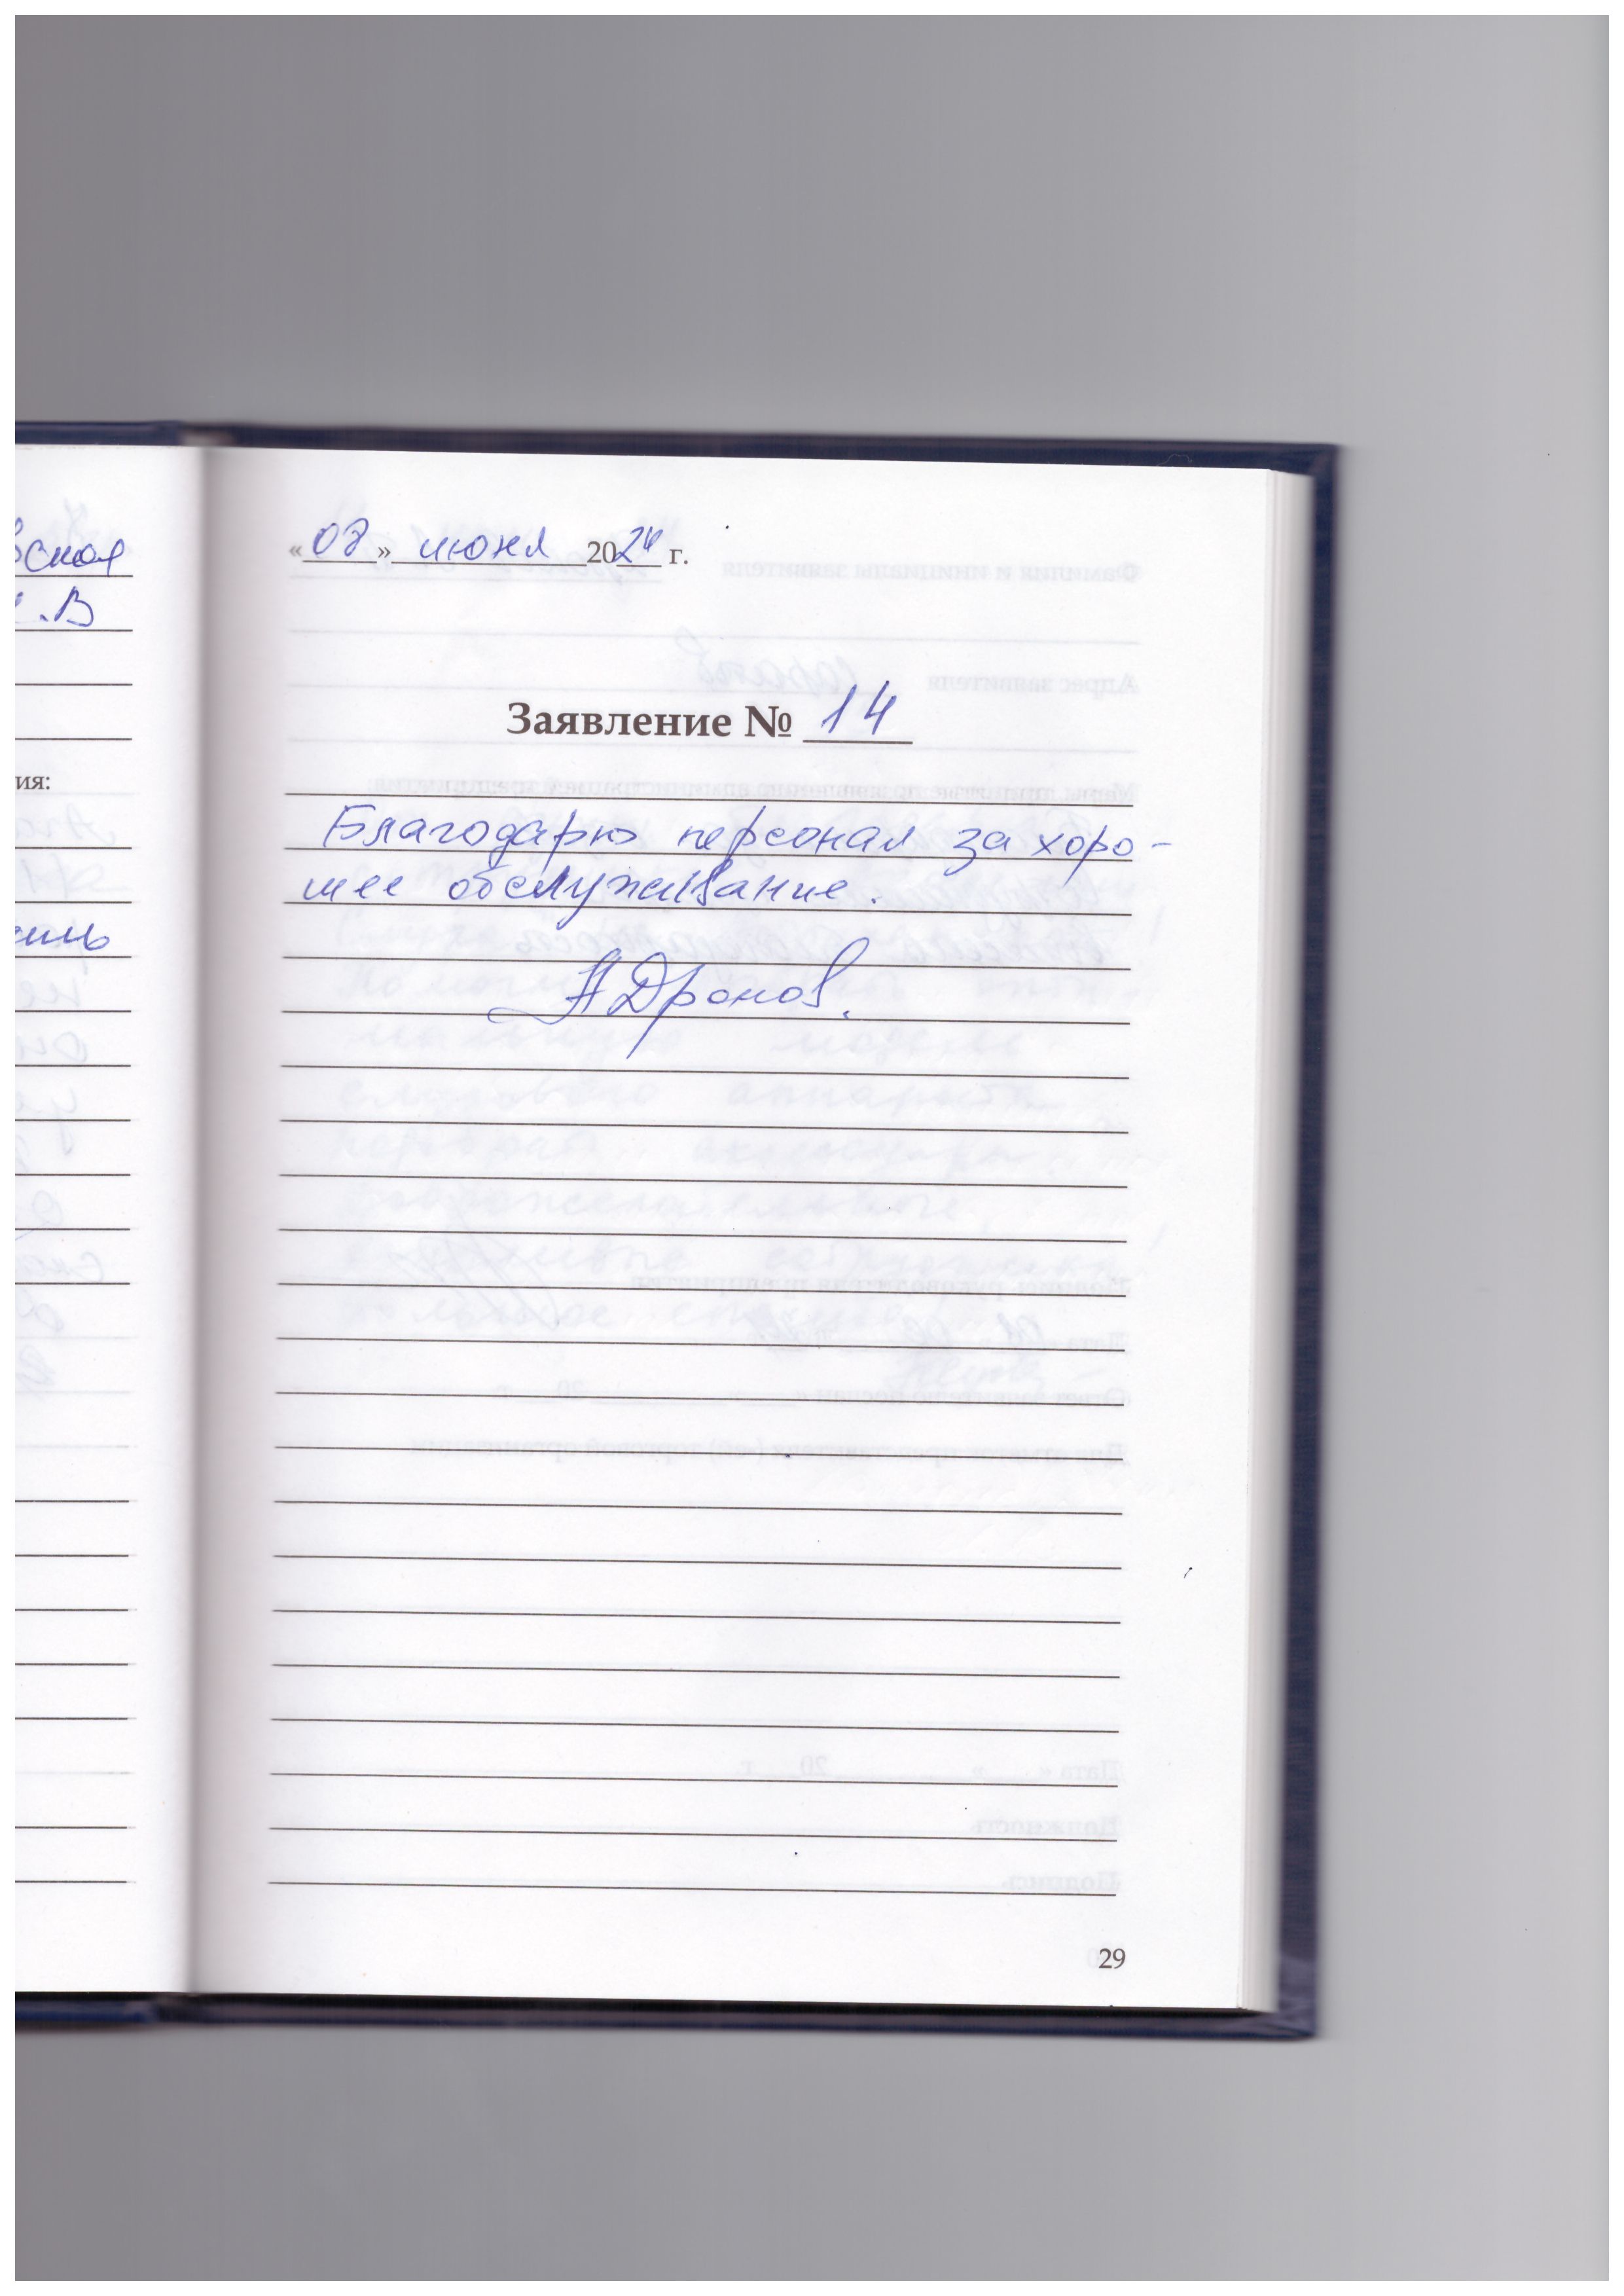 вская
.В
ия:
«08» июня 2024 г.
Заявление № 14
Благодарю персонал за хоро-
шее обслуживание.
А Дронов.
29